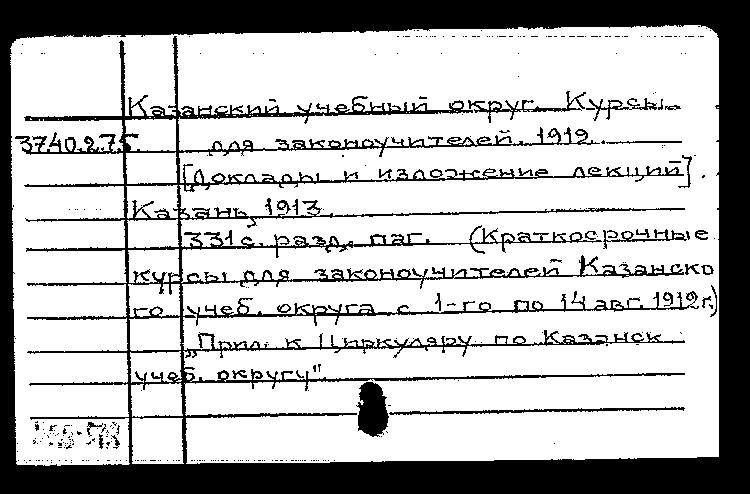 Казанский учебный округ. Курсы
37.40.2.75. для законоучителей. 1912.
[Доклады и изложение лекций].
Казань, 1913.
331 с. разд. паг. (Краткосрочные
курсы для законоучителей Казанско
го учеб. округа с 1-го по 14 авг. 1912 г.)
„Прил. к Циркуляру по Казанск
учеб. округу"